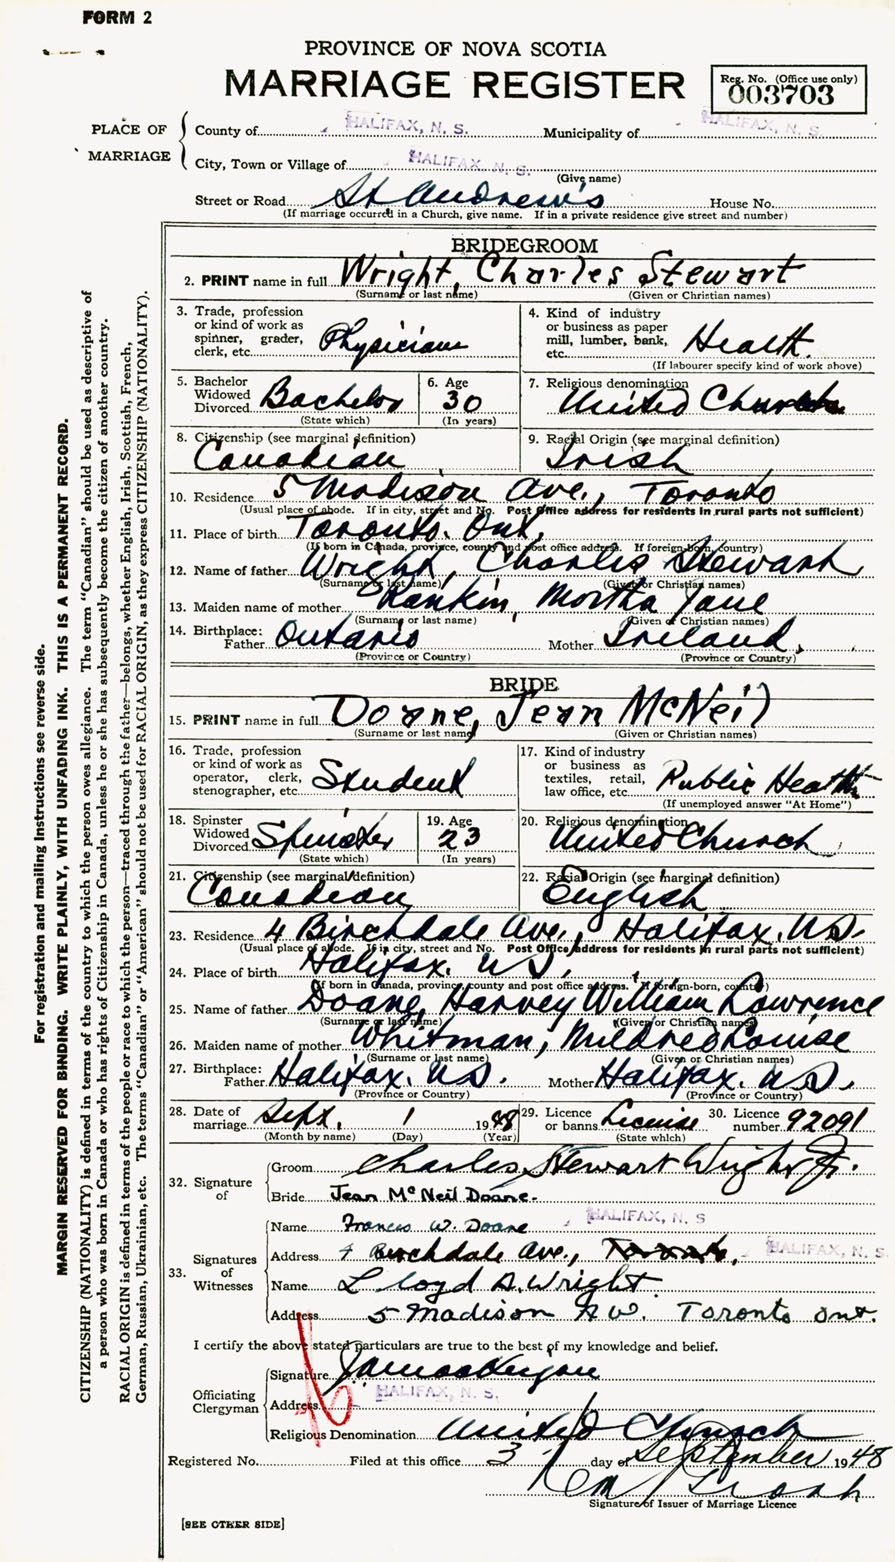 FORM 2
PROVINCE OF NOVA SCOTIA
MARRIAGE REGISTER
Reg. No. (Office use only)
003703
PLACE OF MARRIAGE
County of HALIFAX, N. S. Municipality of HALIFAX, N. S.
City, Town or Village of HALIFAX, N. S.
(Give name)
Street or Road St Andrew's House No.
(If marriage occurred in a Church, give name. If in a private residence give street and number)
BRIDEGROOM
2. PRINT name in full Wright, Charles Stewart
(Surname or last name) (Given or Christian names)
3. Trade, profession or kind of work as spinner, grader, clerk, etc. Physician
4. Kind of industry or business as paper mill, lumber, bank, etc. Health.
(If labourer specify kind of work above)
5. Bachelor Widowed Divorced Bachelor
(State which)
6. Age 30
(In years)
7. Religious denomination United Church
8. Citizenship (see marginal definition)
Canadian
9. Racial Origin (see marginal definition)
Irish
10. Residence 5 Madison Ave., Toronto
(Usual place of abode. If in city, street and No. Post Office address for residents in rural parts not sufficient)
11. Place of birth Toronto. Ont.
(If born in Canada, province, county and post office address. If foreign-born, country)
12. Name of father Wright, Charles Stewart
(Surname or last name) (Given or Christian names)
13. Maiden name of mother Rankin, Martha Jane
(Surname or last name) (Given or Christian names)
14. Birthplace: Father Ontario Mother Ireland.
(Province or Country) (Province or Country)
BRIDE
15. PRINT name in full Doane, Jean McNeil
(Surname or last name) (Given or Christian names)
16. Trade, profession or kind of work as operator, clerk, stenographer, etc. Student
17. Kind of industry or business as textiles, retail, law office, etc. Public Health
(If unemployed answer "At Home")
18. Spinster Widowed Divorced Spinster
(State which)
19. Age 23
(In years)
20. Religious denomination United Church
21. Citizenship (see marginal definition)
Canadian
22. Racial Origin (see marginal definition)
English
23. Residence 4 Birchdale Ave., Halifax. N.S.
(Usual place of abode. If in city, street and No. Post Office address for residents in rural parts not sufficient)
24. Place of birth Halifax. N.S.
(If born in Canada, province, county and post office address. If foreign-born, country)
25. Name of father Doane, Harvey William Lawrence
(Surname or last name) (Given or Christian names)
26. Maiden name of mother Whitman, Mildred Louise
(Surname or last name) (Given or Christian names)
27. Birthplace: Father Halifax. N.S. Mother Halifax. N.S.
(Province or Country) (Province or Country)
28. Date of marriage Sept. 1 1948
(Month by name) (Day) (Year)
29. Licence or banns License
(State which)
30. Licence number 92091
32. Signature of
Groom Charles Stewart Wright Jr.
Bride Jean McNeil Doane.
33. Signatures of Witnesses
Name Francis W. Doane HALIFAX, N. S
Address 4 Birchdale Ave., Toronto, HALIFAX, N. S.
Name Lloyd A. Wright
Address 5 Madison Av. Toronto Ont.
I certify the above stated particulars are true to the best of my knowledge and belief.
Officiating Clergyman
Signature
Address HALIFAX, N. S.
Religious Denomination United Church
Registered No. Filed at this office 3 day of September 1948
Signature of Issuer of Marriage Licence
[SEE OTHER SIDE]
For registration and mailing instructions see reverse side.
MARGIN RESERVED FOR BINDING. WRITE PLAINLY, WITH UNFADING INK. THIS IS A PERMANENT RECORD.
CITIZENSHIP (NATIONALITY) is defined in terms of the country to which the person owes allegiance. The term "Canadian" should be used as descriptive of
a person who was born in Canada or who has rights of Citizenship in Canada, unless he or she has subsequently become the citizen of another country.
RACIAL ORIGIN is defined in terms of the people or race to which the person—traced through the father—belongs, whether English, Irish, Scottish, French,
German, Russian, Ukrainian, etc. The terms "Canadian" or "American" should not be used for RACIAL ORIGIN, as they express CITIZENSHIP (NATIONALITY).